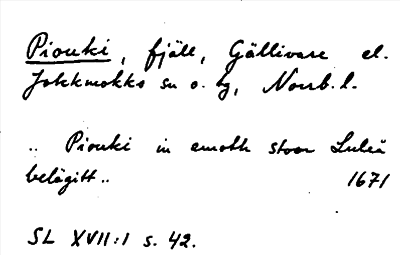 Piouki, fjäll, Gällivare el.
Jokkmokks sn o. lg, Norrb. l.
.. Piouki in emoth stoor Luleå
belägitt .. 1671
SL XVII:1 s. 42.